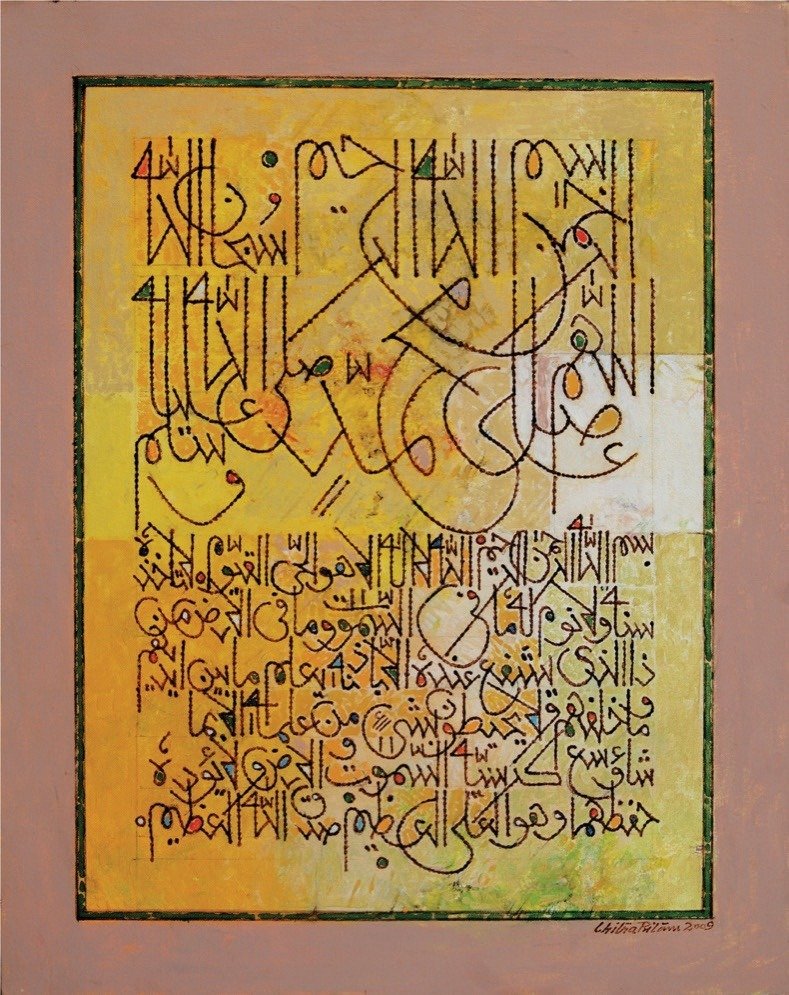 بسم الله الرحمن الرحيم سبحان الله
اللهم صل على محمد صلى الله عليه وسلم
بسم الله الرحمن الرحيم الله لا اله الا هو الحي القيوم لا تاخذه
سنة ولا نوم له ما في السموت وما في الارض من
ذا الذي يشفع عنده الا باذنه يعلم ما بين ايديهم
وما خلفهم ولا يحيطون بشئ من علمه الا بما
شاء وسع كرسيه السموت والارض ولا يؤده
حفظهما وهو العلي العظيم صدق الله العظيم
Chitra Pritam 2009